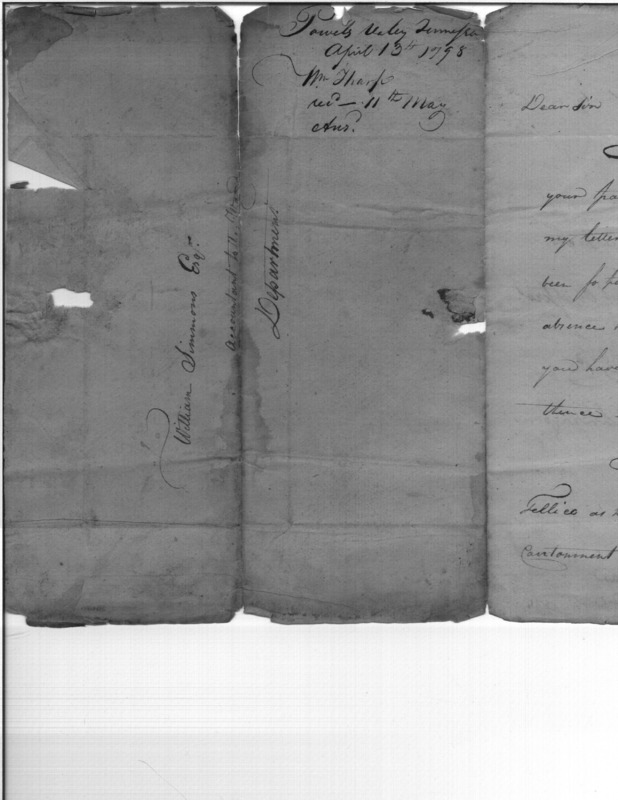 Powels Valey Tennessee
April 13th 1798
Wm Tharp
recd — 11th May
Ansd.
William Simmons Esqr.
accountant to the
Department.
Dear Sir
your
my letter
been so
absence
you have
thence
Tellico as
Cantonment